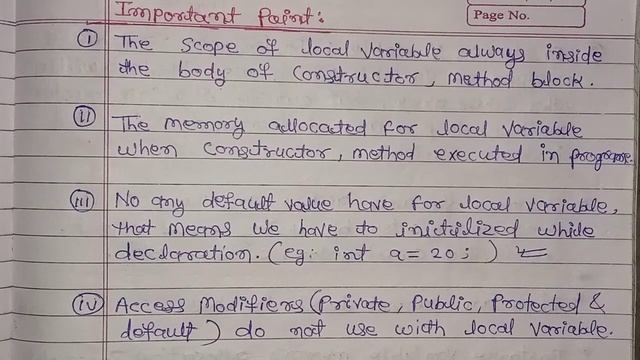 Important Point:
Page No.
(i) The scope of local variable always inside
the body of constructor, method block.
(ii) The memory allocated for local variable
when constructor, method executed in programe.
(iii) No any default value have for local variable,
that means we have to initilized while
decleration. (eg: int a = 20; )
(iv) Access Modifiers (Private, Public, Protected &
default) do not use with local variable.